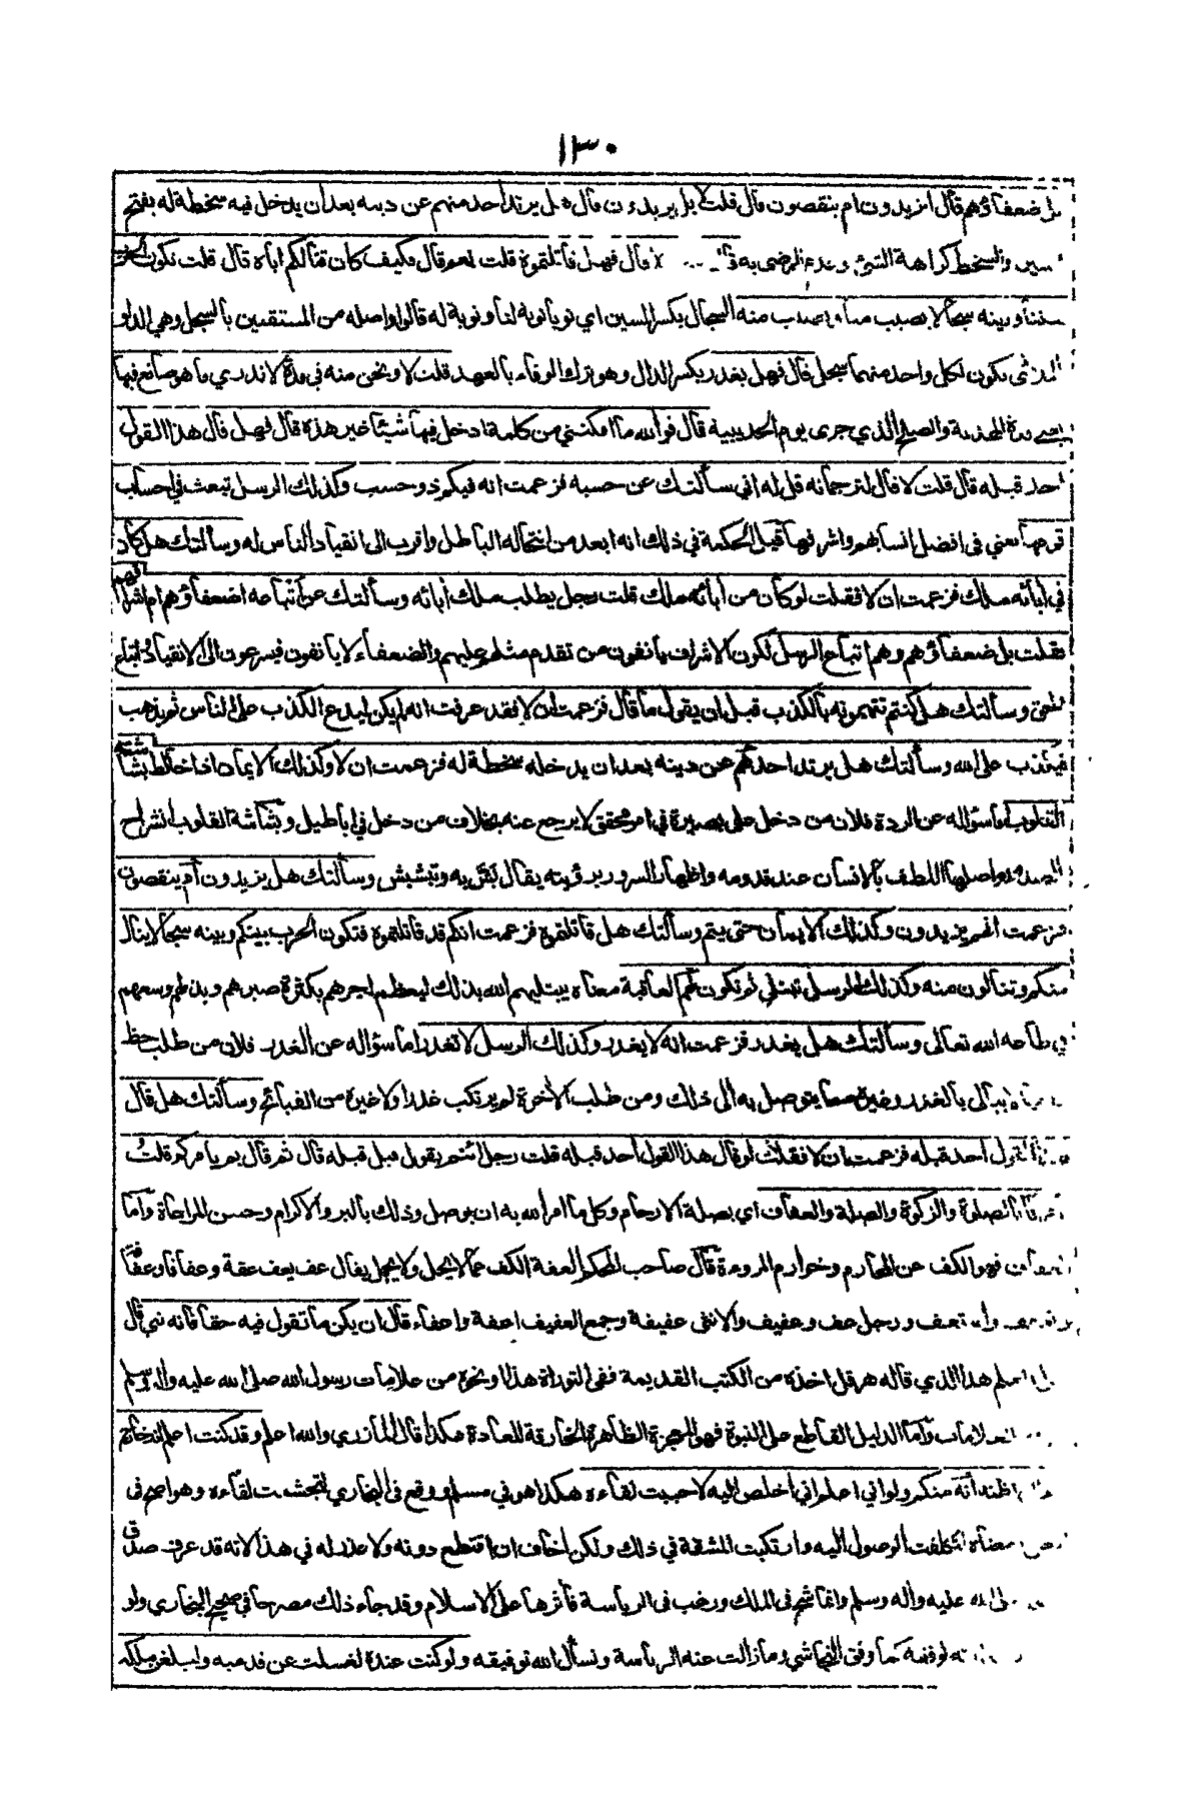 ١٣٠
بل ضعفاؤهم قال ايزيدون ام ينقصون قال قلت لا بل يزيدون قال هل يرتد احد منهم عن دينه بعد ان يدخل فيه سخطة له بفتح
السين والسخط كراهة الشيء وعدم الرضى به لا قال فهل قاتلتموه قلت نعم قال فكيف كان قتالكم اياه قال قلت تكون الحرب
بيننا وبينه سجالا يصيب منا ونصيب منه السجال بكسر السين اي نوبا نوبة لنا ونوبة له قالوا واصله من المستقين بالسجل وهي الدلو
الملأى يكون لكل واحد منهما سجل قال فهل يغدر بكسر الدال وهو ترك الوفاء بالعهد قلت لا ونحن منه في مدة لا ندري ما هو صانع فيها
يعني مدة الهدنة والصلح الذي جرى يوم الحديبية قال فوالله ما امكنني من كلمة ادخل فيها شيئا غير هذه قال فهل قال هذا القول
احد قبله قال قلت لا قال لترجمانه قل له اني سألتك عن حسبه فزعمت انه فيكم ذو حسب وكذلك الرسل تبعث في احساب
قومها يعني في افضل انسابهم واشرفها قيل الحكمة في ذلك انه ابعد من انتحاله الباطل واقرب الى انقياد الناس له وسألتك هل كان
في ابائه ملك فزعمت ان لا فقلت لو كان من أبائه ملك قلت رجل يطلب ملك أبائه وسألتك عن اتباعه اضعفاؤهم ام اشرافهم
فقلت بل ضعفاؤهم وهم اتباع الرسل لكون الاشراف يأنفون من تقدم مثلهم عليهم والضعفاء لا يأنفون فيسرعون الى الانقياد واتباع
الحق وسألتك هل كنتم تتهمونه بالكذب قبل ان يقول ما قال فزعمت ان لا فقد عرفت انه لم يكن ليدع الكذب على الناس ثم يذهب
فيكذب على الله وسألتك هل يرتد احد منهم عن دينه بعد ان يدخله سخطة له فزعمت ان لا وكذلك الايمان اذا خالط بشاشته
القلوب اما سؤاله عن الردة فلان من دخل على بصيرة في امر محقق لا يرجع عنه بخلاف من دخل في اباطيل وبشاشة القلوب انشراح
الصدور واصلها اللطف بالانسان عند قدومه واظهار السرور برؤيته يقال بش به وتبشبش وسألتك هل يزيدون أم ينقصون
فزعمت انهم يزيدون وكذلك الايمان حتى يتم وسألتك هل قاتلتموه فزعمت انكم قد قاتلتموه فتكون الحرب بينكم وبينه سجالا ينال
منكم وتنالون منه وكذلك الرسل تبتلى ثم تكون لهم العاقبة معناه يبتليهم الله بذلك ليعظم اجرهم بكثرة صبرهم وبذلهم وسعهم
في طاعة الله تعالى وسألتك هل يغدر فزعمت انه لا يغدر وكذلك الرسل لا تغدر اما سؤاله عن الغدر فلان من طلب حظ
لا يبالي بالغدر وغيره مما يتوصل به الى ذلك ومن طلب الاخرة لم يرتكب غدرا ولا غيره من القبائح وسألتك هل قال
هذا القول احد قبله فزعمت ان لا فقلت لو قال هذا القول أحد قبله قلت رجل ائتم بقول قيل قبله قال ثم قال بم يأمركم قلت
يأمرنا بالصلوة والزكوة والصلة والعفاف اي بصلة الارحام وكل ما امر الله به ان يوصل وذلك بالبر والاكرام وحسن المراعاة واما
العفاف فهو الكف عن المحارم وخوارم المروءة قال صاحب المحكم العفة الكف عما لا يحل ولا يجمل يقال عف يعف عفة وعفافا وعفافة
وتعفف واستعف ورجل عف وعفيف والانثى عفيفة وجمع العفيف اعفة واعفاء قال ان يكن ما تقول فيه حقا فانه نبي قال
العلم هذا الذي قاله هرقل اخذه من الكتب القديمة ففي التوراة هذا ونحوه من علامات رسول الله صلى الله عليه واله وسلم
العلامات واما الدليل القاطع على النبوة فهو المعجزة الظاهرة الخارقة للعادة هكذا قال المازري والله اعلم وقد كنت اعلم انه خارج
اظنه انه منكم ولو اني اعلم اني اخلص اليه لاحببت لقاءه هكذا هو في مسلم ووقع في البخاري لتجشمت لقاءه وهو اصح في
المعنى معناه لتكلفت الوصول اليه وارتكبت المشقة في ذلك ولكن اخاف ان اقتطع دونه ولا عذر له في هذا لانه قد عرف صدق
صلى الله عليه واله وسلم وانما شح في الملك ورغب في الرياسة فآثرها على الاسلام وقد جاء ذلك مصرحا في صحيح البخاري ولو
لوفقه كما وفق النجاشي وما زالت عنه الرياسة ونسأل الله توفيقه ولو كنت عنده لغسلت عن قدميه وليبلغن ملكه